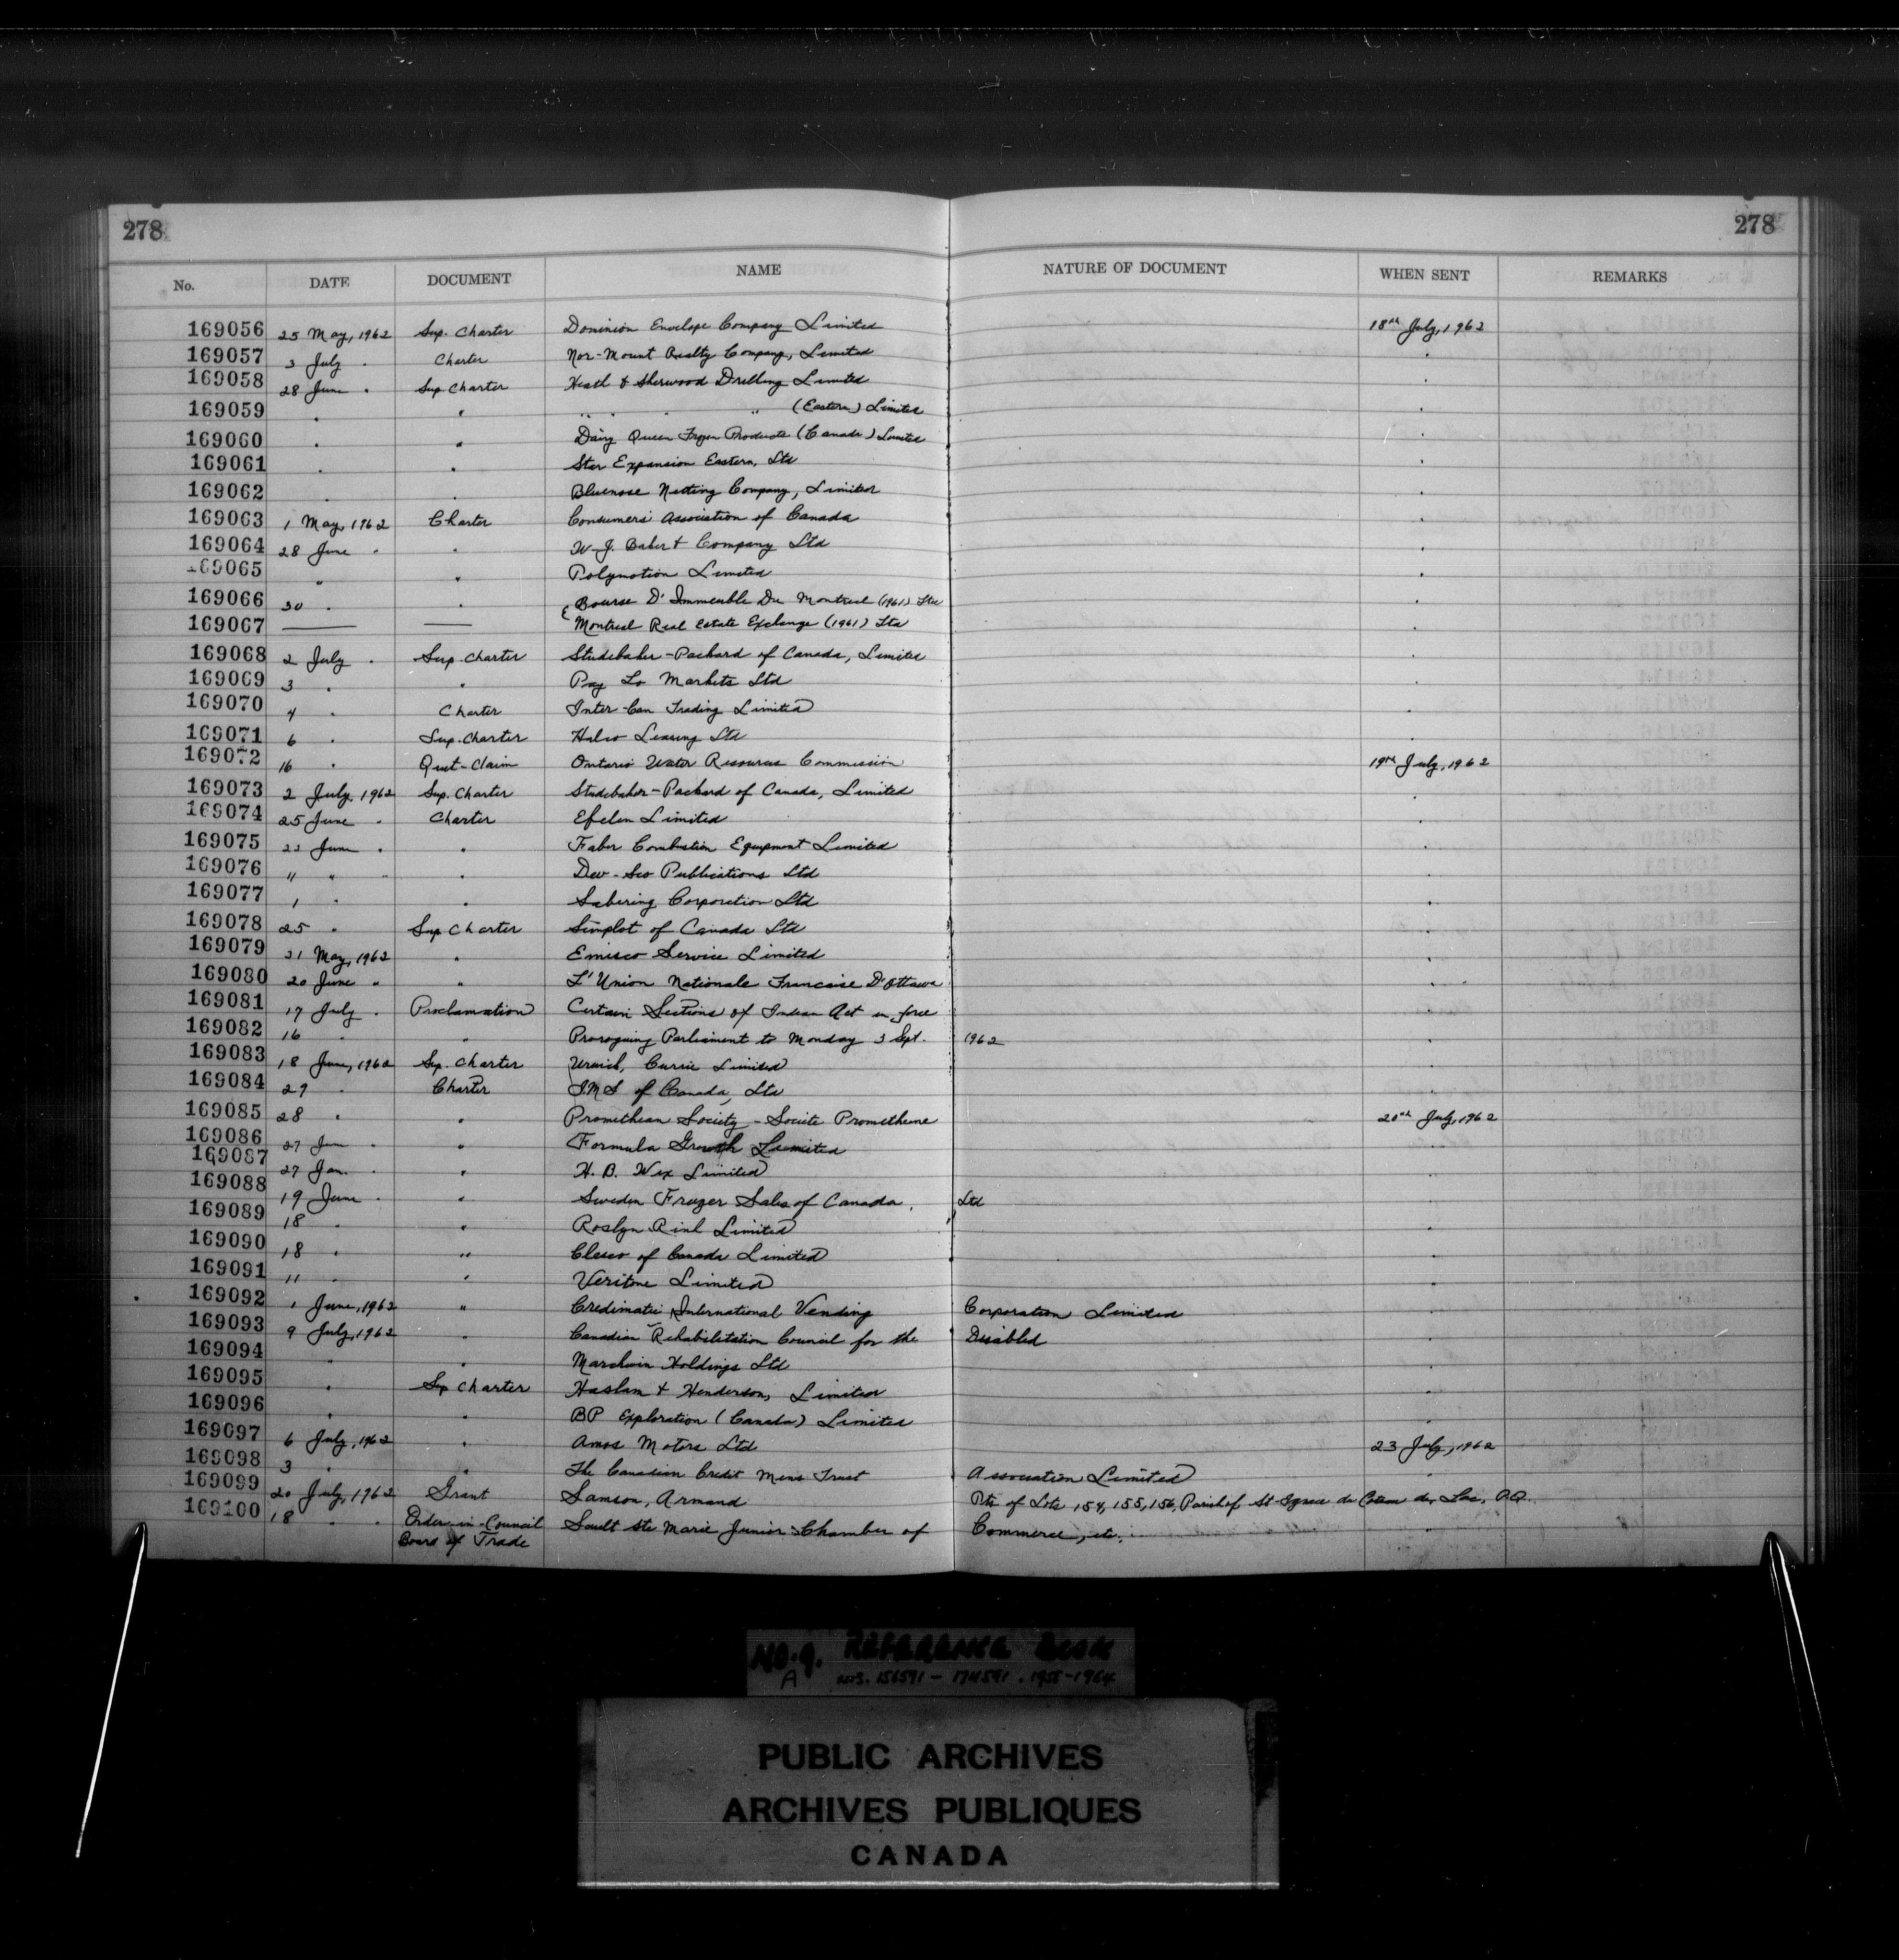 278 278
No. DATE DOCUMENT NAME NATURE OF DOCUMENT WHEN SENT REMARKS
169056 25 May, 1962 Sup. Charter Dominion Envelope Company Limited 18th July, 1962
169057 3 July . Charter Nor-Mount Realty Company, Limited .
169058 28 June . Sup. Charter Heath & Sherwood Drilling Limited .
169059 . " " " " " (Eastern) Limited .
169060 . " Dairy Queen Frozen Products (Canada) Limited .
169061 . " Star Expansion Eastern, Ltd .
169062 . . Bluenose Netting Company, Limited .
169063 1 May, 1962 Charter Consumers' Association of Canada .
169064 28 June . . W. J. Baker & Company Ltd .
169065 " " Polymotion Limited .
169066 30 . . Bourse D'Immeuble Du Montreal (1961) Ltee .
169067 —— —— Montreal Real Estate Exchange (1961) Ltd .
169068 2 July . Sup. Charter Studebaker-Packard of Canada, Limited .
169069 3 . " Pay Lo Markets Ltd .
169070 4 . Charter Inter-Can Trading Limited .
169071 6 . Sup. Charter Leasing Ltd .
169072 16 . Quit-Claim Ontario Water Resources Commission 19th July, 1962
169073 2 July, 1962 Sup. Charter Studebaker-Packard of Canada, Limited .
169074 25 June . Charter Efelen Limited .
169075 22 June . . Faber Combustion Equipment Limited .
169076 " " " . Dev-Sco Publications Ltd .
169077 1 " . Sabering Corporation Ltd .
169078 25 " Sup Charter Simplot of Canada Ltd .
169079 31 May, 1962 " Emisco Service Limited .
169080 20 June " " L'Union Nationale Francaise D'Ottawa .
169081 17 July . Proclamation Certain Sections of Indian Act in force .
169082 16 . " Proroguing Parliament to Monday 3 Sept. 1962 .
169083 18 June, 1962 Sup. Charter Urwick, Currie Limited .
169084 27 . Charter I.M.S of Canada, Ltd .
169085 28 " . Promethean Society - Societe Prometheene 20th July, 1962
169086 27 Jun . " Formula Growth Limited .
169087 27 Jan. . " H. B. Wex Limited .
169088 19 June . " Sweden Freezer Sales of Canada, Ltd
169089 18 " " Roslyn Rink Limited .
169090 18 " " Cleseo of Canada Limited .
169091 11 " " Veritone Limited .
169092 1 June, 1962 " Credimatic International Vending Corporation Limited .
169093 9 July, 1962 " Canadian Rehabilitation Council for the Disabled .
169094 " . Marchwin Holdings Ltd .
169095 . Sup Charter Haslam & Henderson, Limited .
169096 . " BP Exploration (Canada) Limited .
169097 6 July, 1962 . Amos Motors Ltd 23 July, 1962
169098 3 . " The Canadian Credit Mens Trust Association Limited "
169099 20 July, 1962 Grant Samson, Armand Pts of Lots 154, 155, 156, Parish of St-Ignace du Coteau du Lac, P.Q.
169100 18 " " Order-in-Council Sault Ste Marie Junior Chamber of Commerce, etc. "
Board of Trade
No. 9. REFERENCE BOOK
A NOS. 156591 - 174591 . 1955-1964
PUBLIC ARCHIVES
ARCHIVES PUBLIQUES
CANADA